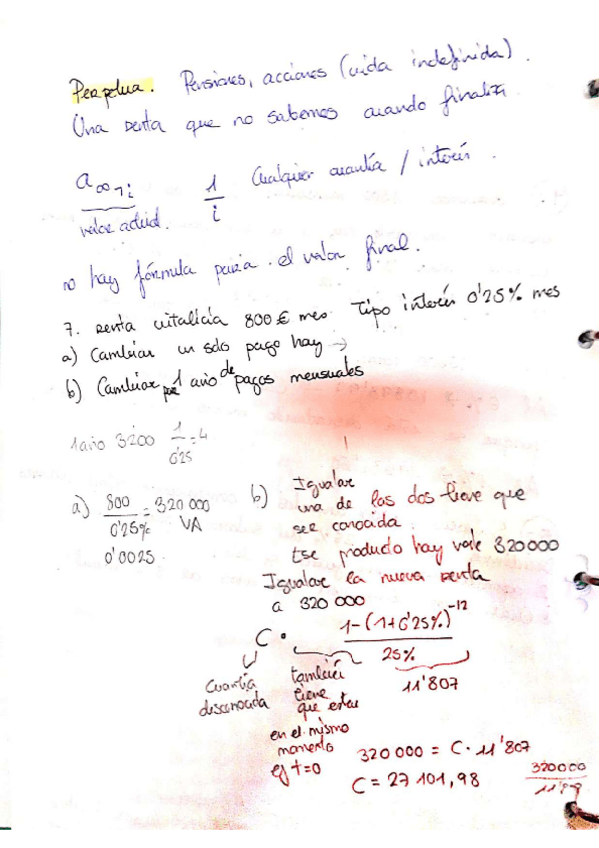 Perpetua. Pensiones, acciones (vida indefinida).
Una renta que no sabemos cuando finaliza
a∞┐i 1/i Cualquier cuantía / interés.
valor actual.
no hay fórmula para el valor final.
7. Renta vitalicia 800 € mes Tipo interés 0'25% mes
a) Cambiar un solo pago hoy →
b) Cambiar por 1 año de pagos mensuales
1 año 3200 1/0'25 = 4
a) 800/0'25% = 320 000
VA
0'0025
b) Igualar
una de las dos tiene que
ser conocida.
Ese producto hoy vale 320000
Igualar la nueva renta
a 320 000
C · 1-(1+0'25%)^-12 / 25%
11'807
Cuantía
desconocida
también
tiene
que estar
en el mismo
momento
ej t=0
320 000 = C · 11'807
C = 27 101,98
320000